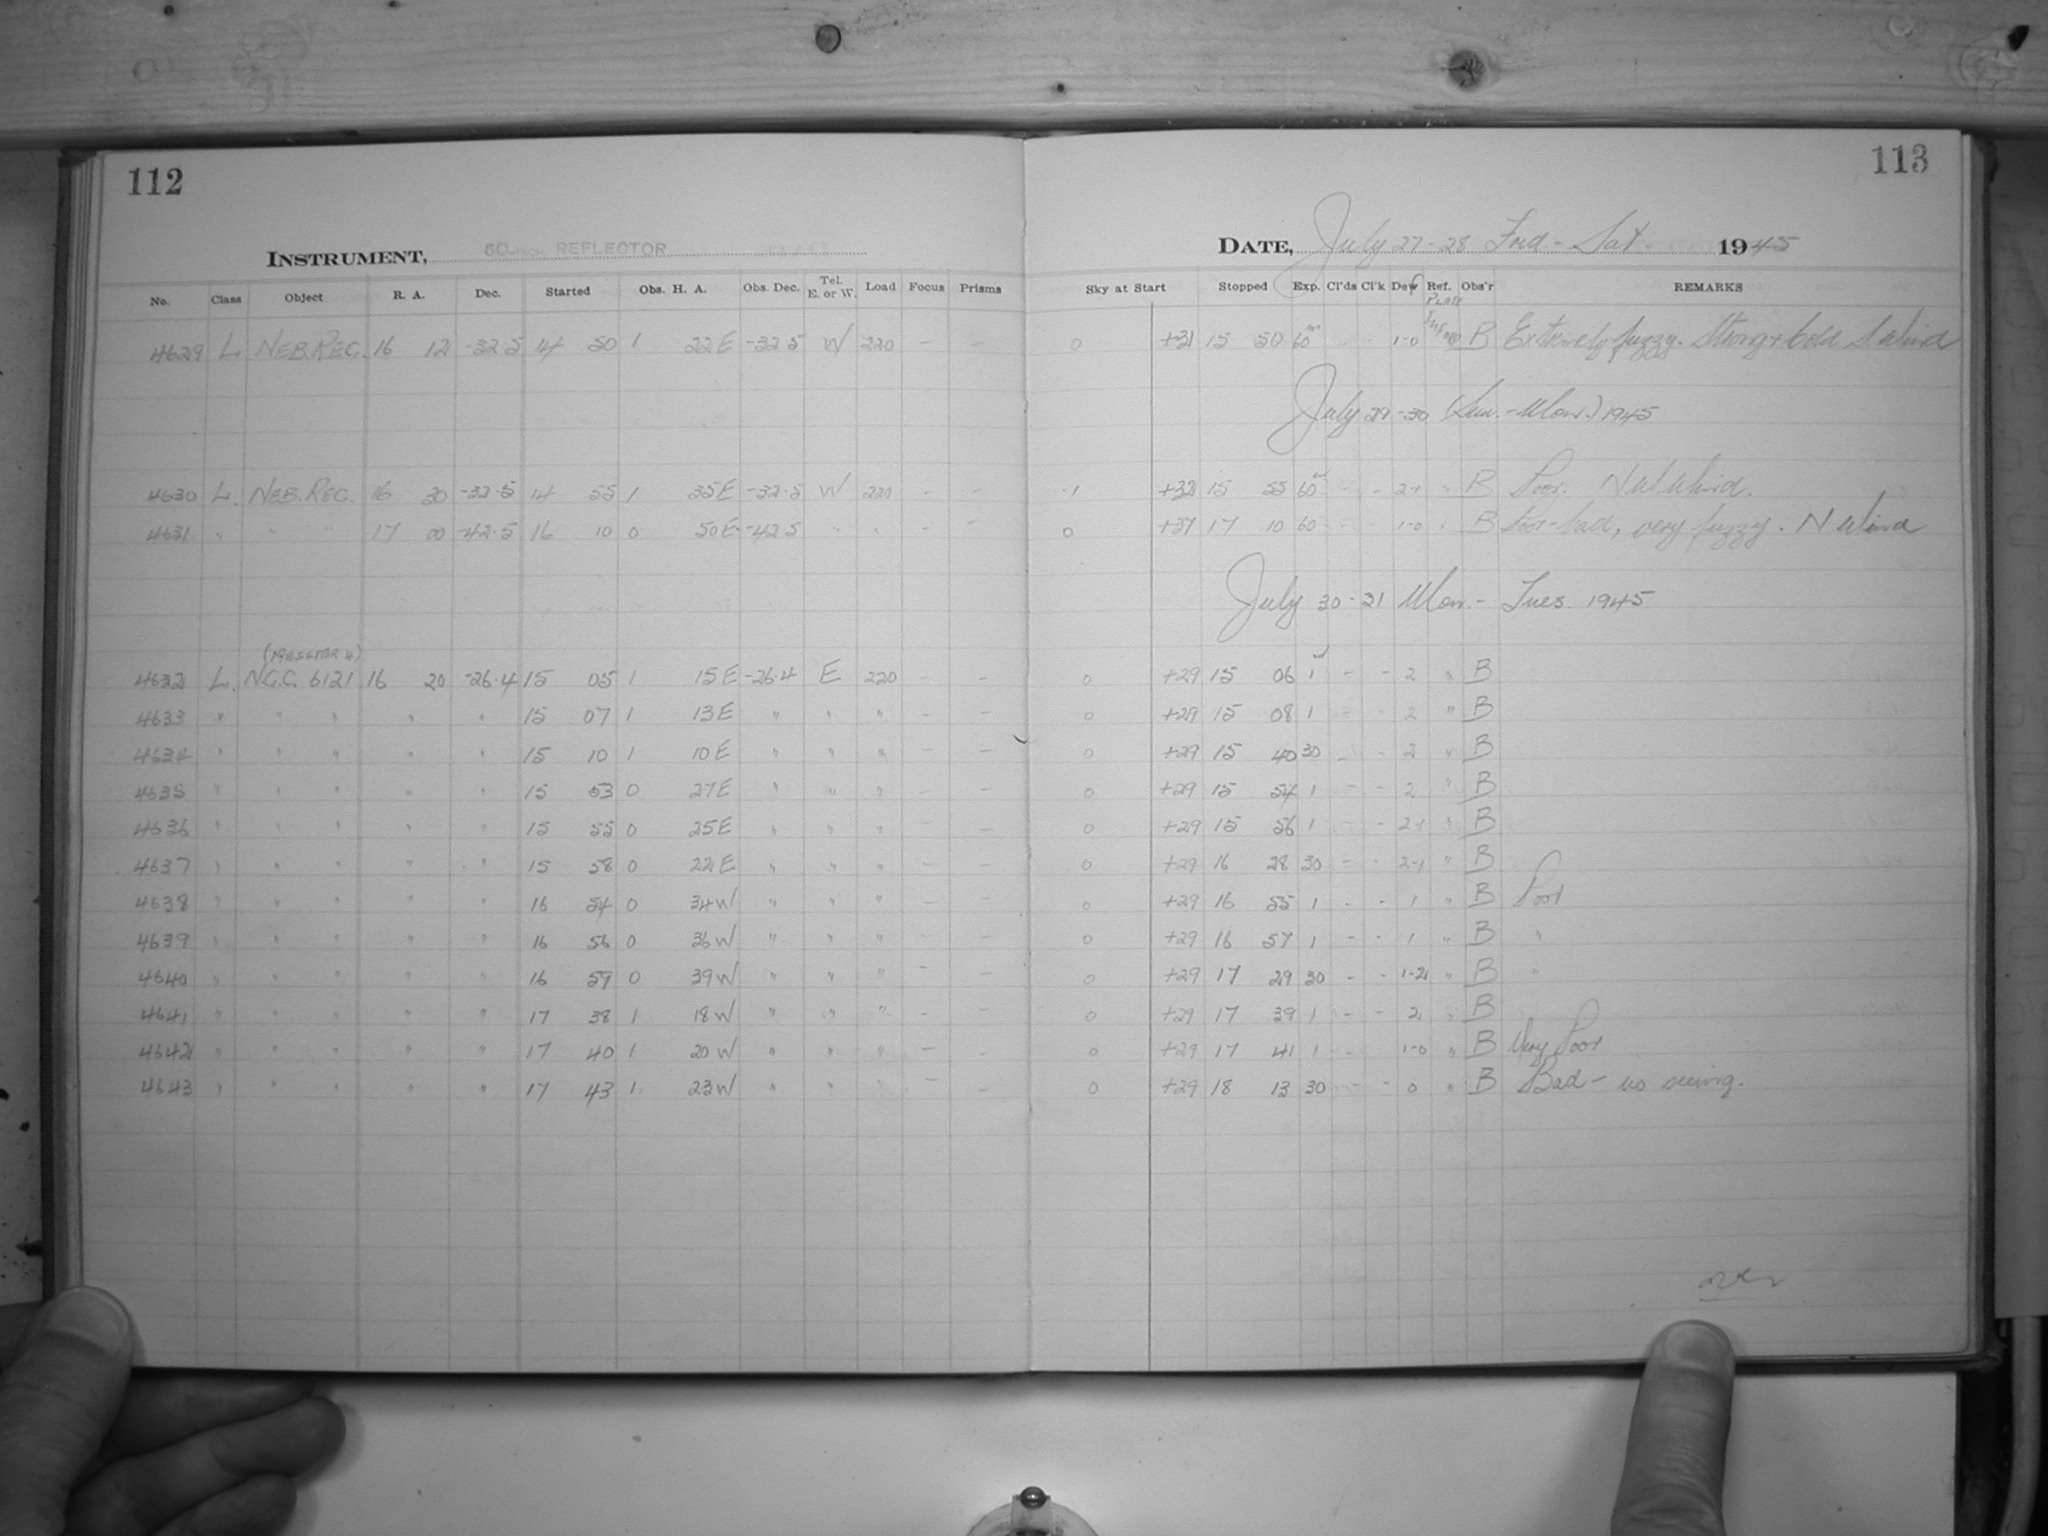 112
113
INSTRUMENT, 60-INCH REFLECTOR
DATE, July 27-28 Frid - Sat 1945
No. Class Object R. A. Dec. Started Obs. H. A. Obs. Dec. Tel. E. or W. Load Focus Prisms Sky at Start Stopped Exp. Cl'ds Cl'k Dew Ref. Obs'r REMARKS
PLATE
4629 L NEB. REG. 16 12 -32.5 14 50 1 22E -32.5 W 220 - - 0 +31 15 50 60m 1-0 B Extremely fuzzy. Strong + cold S Wind
July 29-30 (Sun. - Mon.) 1945
4630 L. NEB. REG. 16 30 -32.5 14 55 1 35E -32.5 W 220 - - .1 +32 15 55 60 - - 2-1 " B Poor. NW Wind.
4631 " " " 17 00 -42.5 16 10 0 50E -42.5 " " - - 0 +37 17 10 60 - - 1-0 " B Poor-bad, very fuzzy. N Wind
July 30-21 Mon. - Tues. 1945
(MESSIER 4)
4632 L. N.G.C. 6121 16 20 -26.4 15 05 1 15E -26.4 E 220 - - 0 +29 15 06 1 - - 2 " B
4633 " " " " " 15 07 1 13E " " " - - 0 +29 15 08 1 - - 2 " B
4634 " " " " " 15 10 1 10E " " " - - 0 +29 15 40 30 - - 2 " B
4635 " " " " " 15 53 0 27E " " " - - 0 +29 15 54 1 - - 2 " B
4636 " " " " " 15 55 0 25E " " " - - 0 +29 15 56 1 - - 2-1 " B
4637 " " " " " 15 58 0 22E " " " - - 0 +29 16 28 30 - - 2-1 " B
4638 " " " " " 16 54 0 34W " " " - - 0 +29 16 55 1 - - 1 " B Poor
4639 " " " " " 16 56 0 36W " " " - - 0 +29 16 57 1 - - 1 " B "
4640 " " " " " 16 59 0 39W " " " - - 0 +29 17 29 30 - - 1-2 " B "
4641 " " " " " 17 38 1 18W " " " - - 0 +29 17 39 1 - - 2 " B
4642 " " " " " 17 40 1 20W " " " - - 0 +29 17 41 1 - - 1-0 " B Very Poor
4643 " " " " " 17 43 1 23W " " " - - 0 +29 18 13 30 - - 0 " B Bad - no seeing.
over